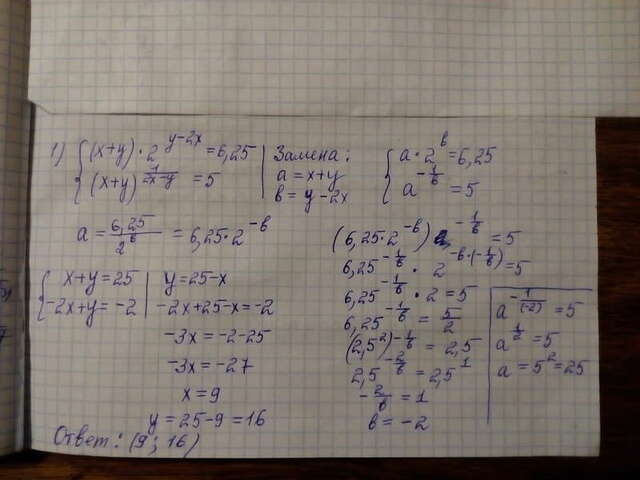 1) { (x+y)·2^(y-2x) = 6,25
(x+y)^(1/(2x-y)) = 5
Замена:
a = x+y
b = y-2x
{ a·2^b = 6,25
a^(-1/b) = 5
a = 6,25/2^b = 6,25·2^(-b)
(6,25·2^(-b))^(-1/b) = 5
6,25^(-1/b) · 2^(-b·(-1/b)) = 5
6,25^(-1/b) · 2 = 5
6,25^(-1/b) = 5/2
(2,5^2)^(-1/b) = 2,5
2,5^(-2/b) = 2,5^1
-2/b = 1
b = -2
a^(-1/(-2)) = 5
a^(1/2) = 5
a = 5^2 = 25
{ x+y = 25
-2x+y = -2
y = 25-x
-2x+25-x = -2
-3x = -2-25
-3x = -27
x = 9
y = 25-9 = 16
Ответ: (9; 16)